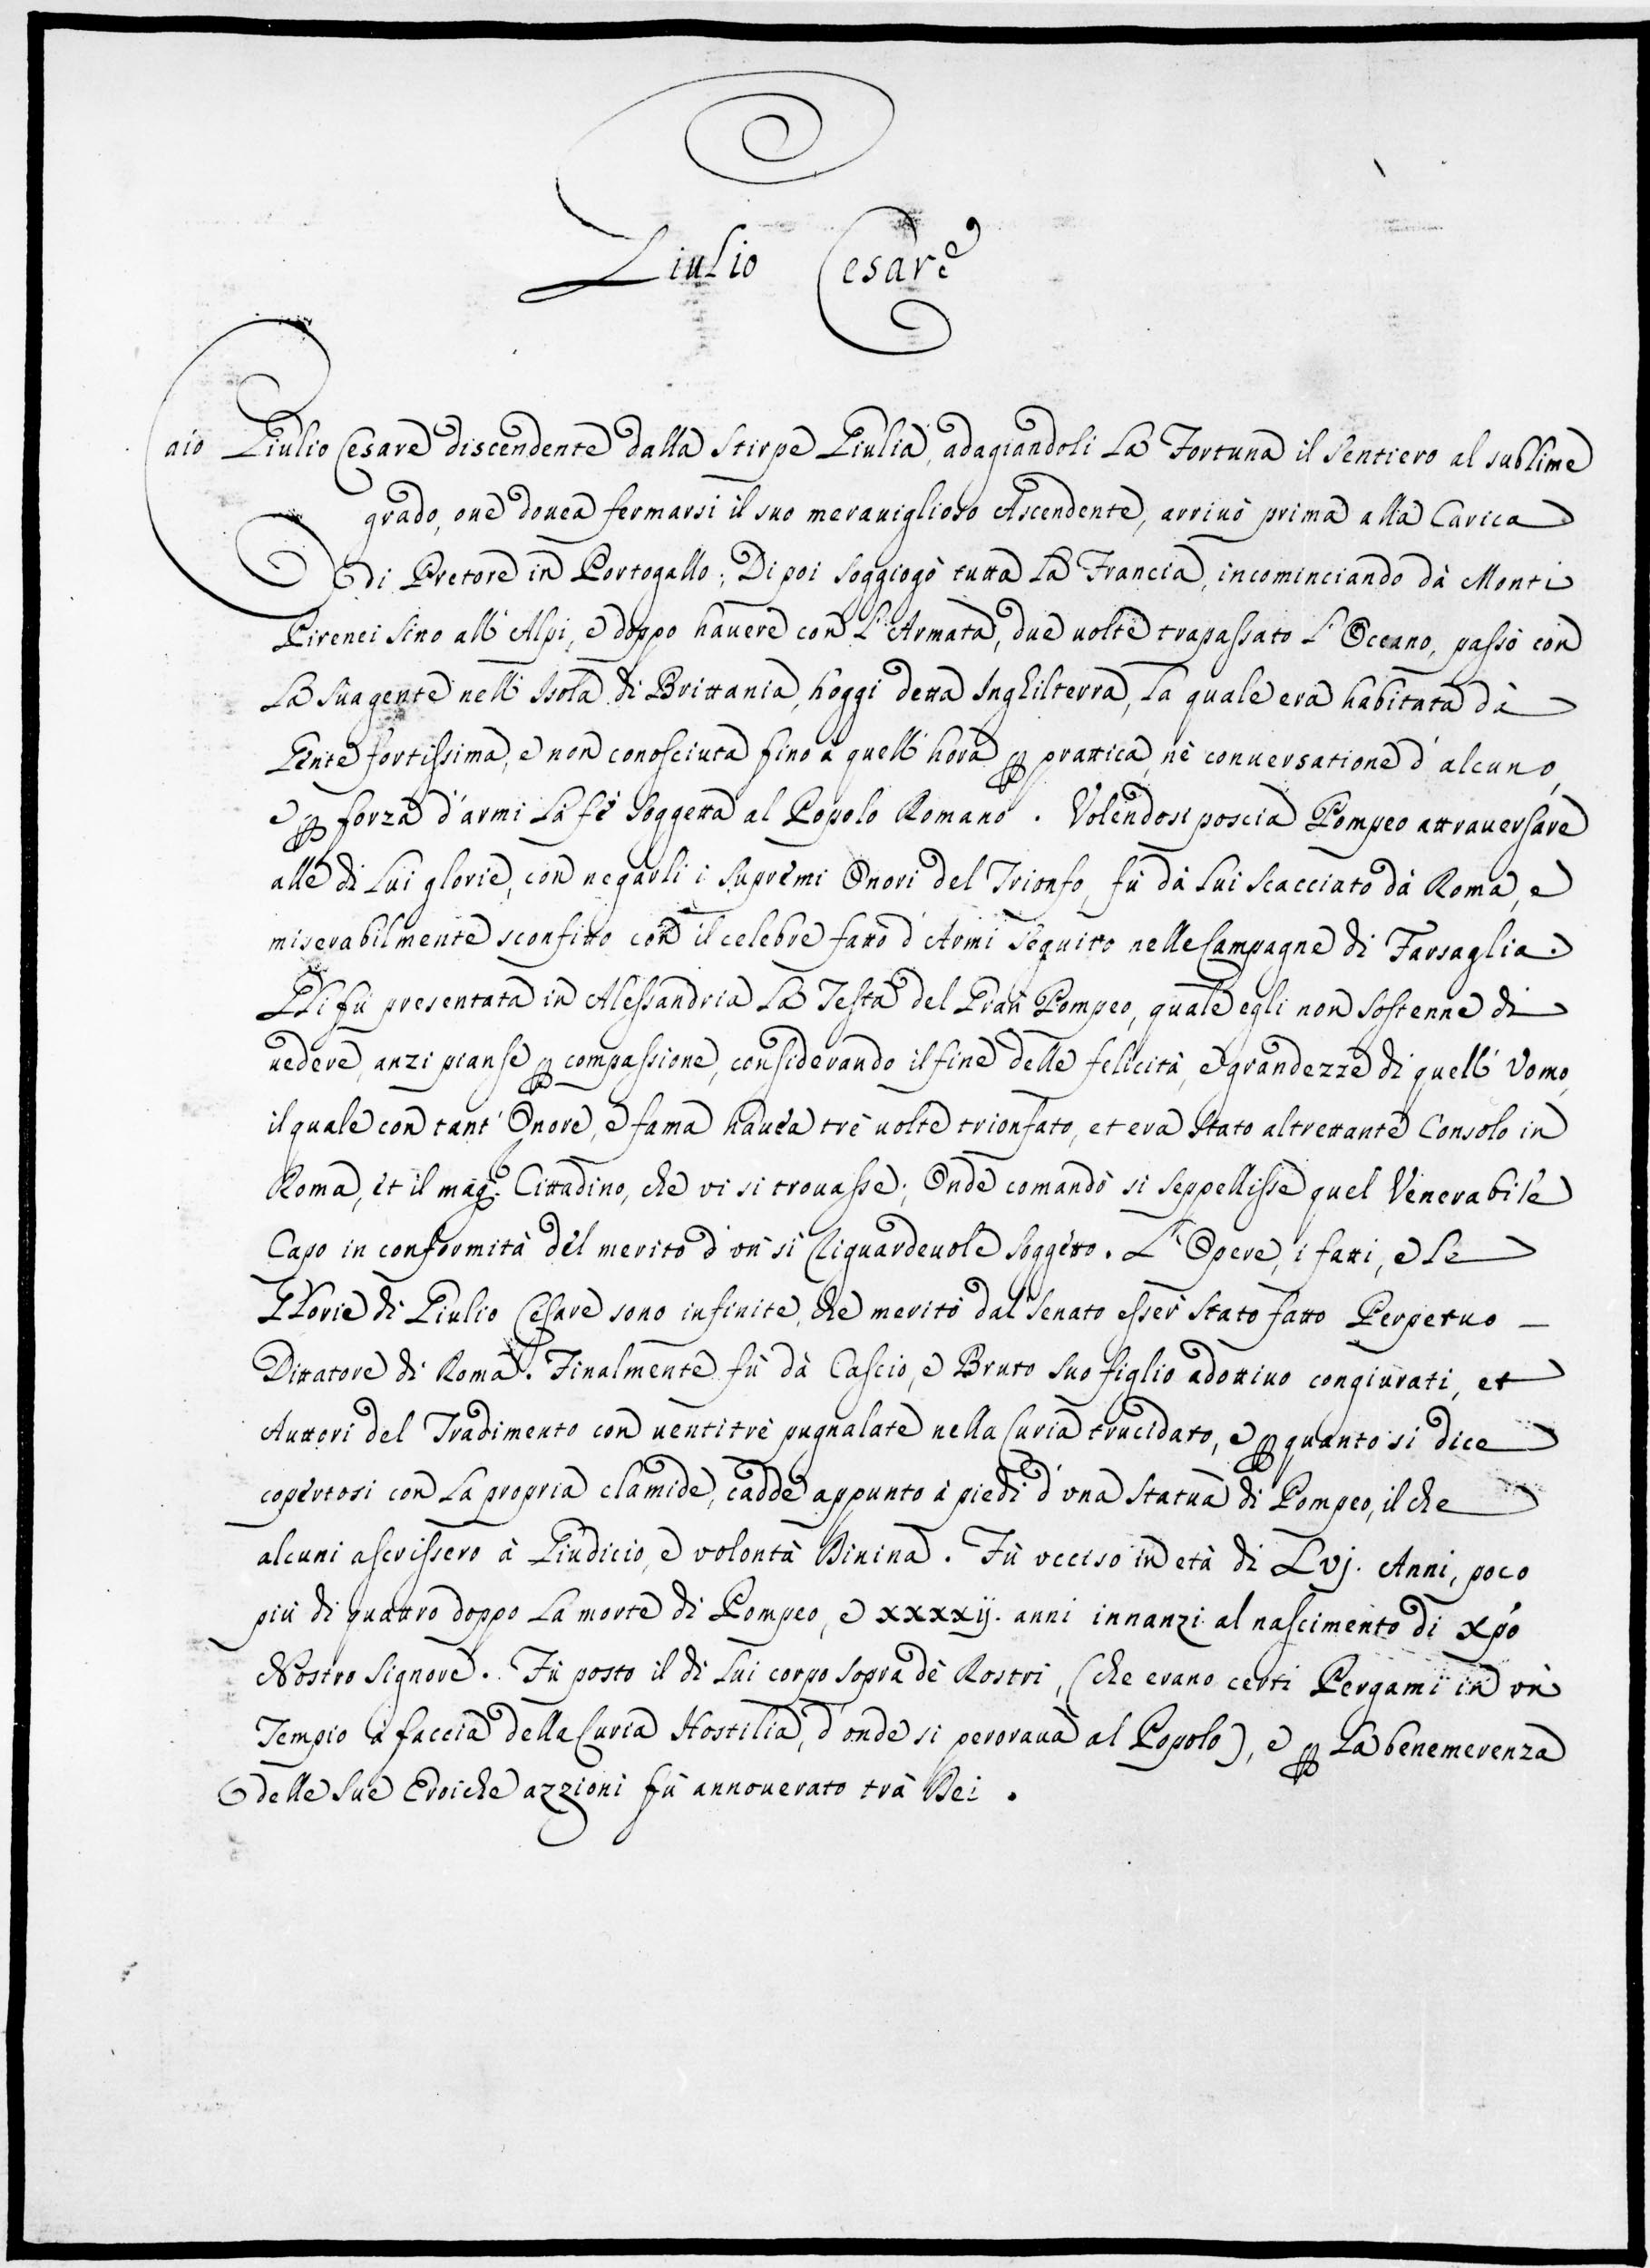 Giulio Cesare
Caio Giulio Cesare discendente dalla Stirpe Giulia, adagiandoli la Fortuna il Sentiero al sublime
grado, oue douea fermarsi il suo merauiglioso Ascendente, arriuò prima alla Carica
di Pretore in Portogallo; Di poi soggiogò tutta la Francia, incominciando dà Monti
Pirenei sino all'Alpi, e doppo hauere con l'Armata, due uolte trapassato l'Oceano, passò con
la sua gente nell'Isola di Brittania, hoggi detta Inghilterra, la quale era habitata dà
Gente fortissima, e non conosciuta fino à quell'hora ꝑ prattica, nè conuersatione d'alcuno,
e ꝑ forza d'armi la fè soggetta al Popolo Romano. Volendosi poscia Pompeo attrauersare
alle di Lui glorie, con negarli i supremi Onori del Trionfo, fù dà Lui scacciato dà Roma, e
miserabilmente sconfitto con il celebre fatto d'Armi seguito nelle Campagne di Farsaglia.
Gli fù presentata in Alessandria la Testa del Gran Pompeo, quale egli non sostenne di
uedere, anzi pianse ꝑ compassione, considerando il fine delle felicità, e grandezze di quell'Vomo,
il quale con tant'Onore, e fama hauea trè uolte trionfato, et era stato altrettante Consolo in
Roma, et il mag.e Cittadino, che vi si trouasse; Onde comandò si seppellisse quel Venerabile
Capo in conformità del merito d'vn sì riguardeuole soggetto. L'Opere, i fatti, e le
Glorie di Giulio Cesare sono infinite, che meritò dal Senato esser stato fatto Perpetuo
Dittatore di Roma. Finalmente fù dà Cascio, e Bruto suo figlio adottiuo congiurati, et
Auttori del Tradimento con uentitrè pugnalate nella Curia trucidato, e ꝑ quanto si dice
copertosi con la propria clamide, cadde appunto à piedi d'vna Statua di Pompeo, il che
alcuni ascrissero à Giudicio, e volontà Diuina. Fù vcciso in età di Lvj. Anni, poco
più di quattro doppo la morte di Pompeo, e xxxxij. anni innanzi al nascimento di xp̃o
Nostro Signore. Fù posto il di Lui corpo sopra dè Rostri, (che erano certi Pergami in vn
Tempio à faccia della Curia Hostilia, d'onde si peroraua al Popolo), e ꝑ la benemerenza
delle sue Eroiche azzioni fù annouerato trà Dei.